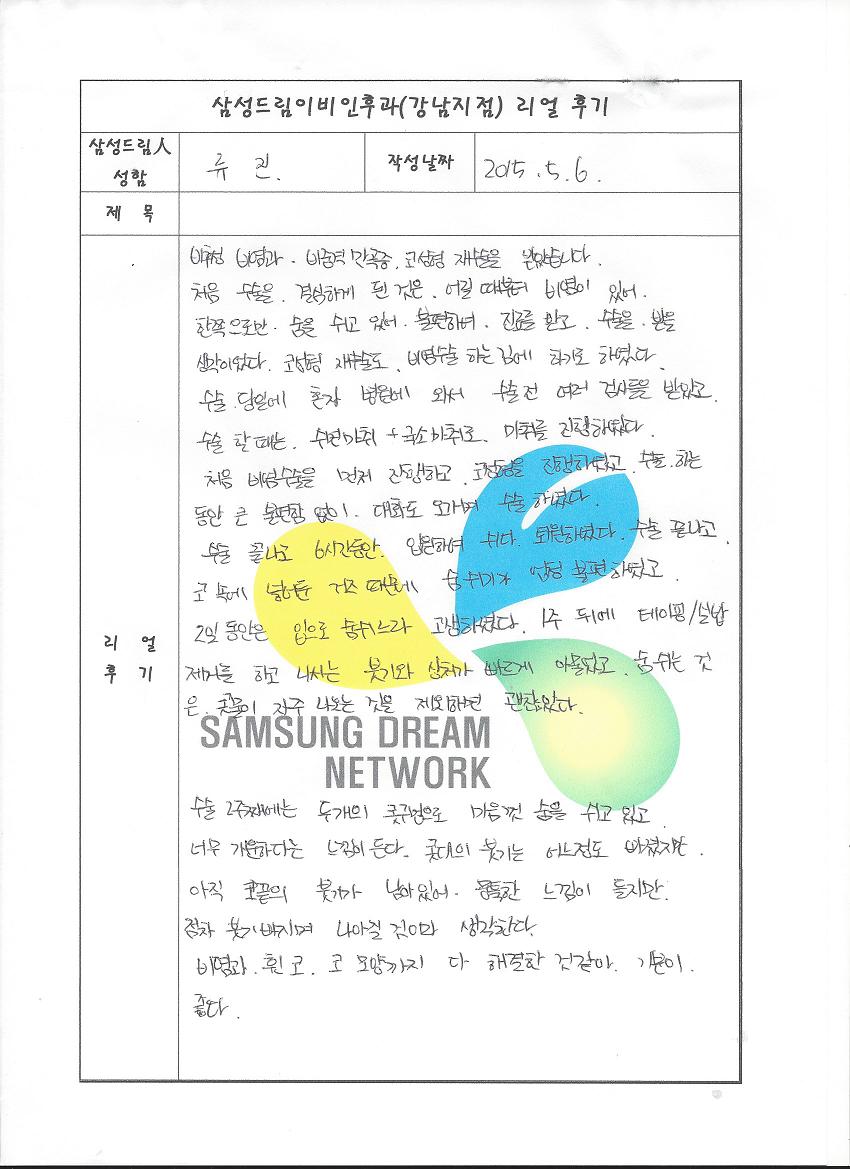 삼성드림이비인후과(강남지점) 리얼 후기
삼성드림人
성함
류 진.
작성날짜
2015.5.6.
제 목
비후성 비염과. 비중격 만곡증, 코성형 재수술을 받았습니다.
처음 수술을. 결심하게 된 것은. 어릴 때부터 비염이 있어.
한쪽으로만. 숨을 쉬고 있어. 불편하여. 진료를 받고. 수술을. 받을
생각이었다. 코성형 재수술도. 비염수술 하는김에 하기로 하였다.
수술. 당일에 혼자 병원에 와서 수술 전 여러 검사들을 받았고.
수술 할 때는. 수면마취 + 국소마취로. 마취를 진행하였다.
처음 비염수술을 먼저 진행하고. 코성형을 진행하였고. 수술. 하는
동안 큰 불편함 없이. 대화도 오가며 수술 하였다.
수술 끝나고 6시간동안. 입원하여 쉬다. 퇴원하였다. 수술 끝나고.
코 속에 넣어둔 거즈 때문에 숨쉬기가 엄청 불편하였고.
2일 동안은 입으로 숨쉬느라 고생하였다. 1주 뒤에 테이핑/실밥
제거를 하고 나서는 붓기와 상처가 빠르게 아물었고. 숨쉬는 것
은. 콧물이 자주 나오는 것을 제외하면 괜찮았다.
SAMSUNG DREAM
NETWORK
리 얼
후 기
수술 2주째에는 두개의 콧구멍으로 마음껏 숨을 쉬고 있고
너무 개운하다는 느낌이 든다. 콧대의 붓기는 어느정도 빠졌지만.
아직 코끝의 붓기가 남아있어. 뭉툭한 느낌이 들지만.
점차 붓기 빠지며 나아질 것이라 생각한다.
비염과. 휜 코. 코 모양까지 다 해결한 것같아. 기분이.
좋다.